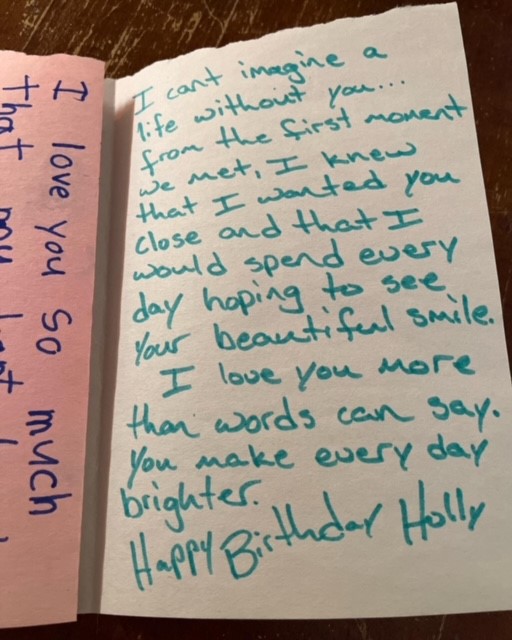 I cant imagine a
life without you...
from the first moment
we met, I knew
that I wanted you
close and that I
would spend every
day hoping to see
your beautiful smile.
I love you more
than words can say.
You make every day
brighter.
Happy Birthday Holly
I love you so much
that my